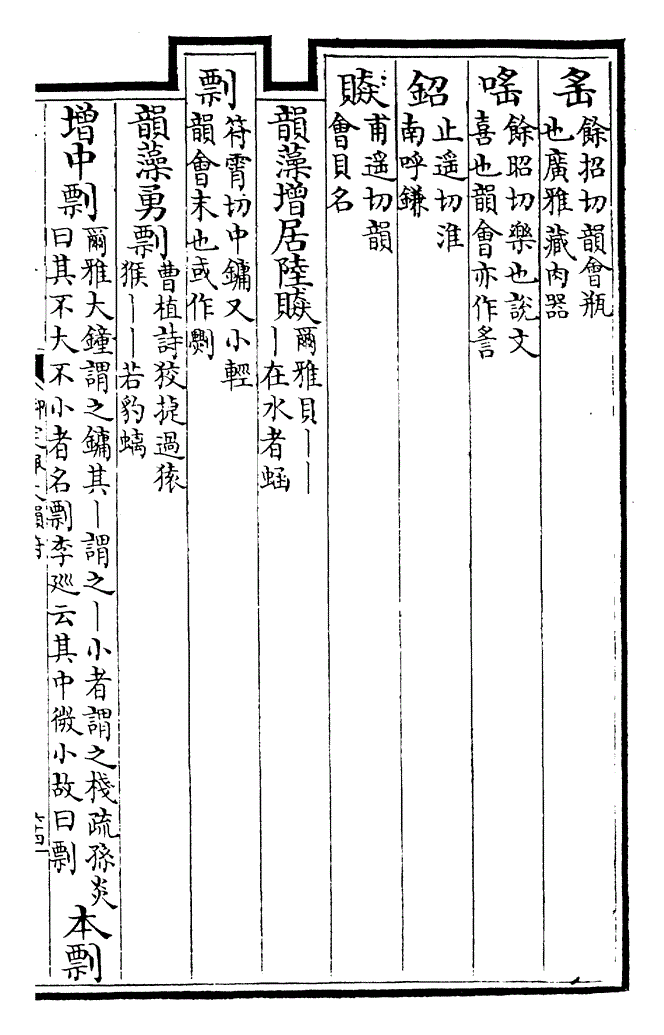 䍃餘招切韻會瓶
也廣雅藏肉器
嗂餘昭切樂也說文
喜也韻會亦作䚻
鉊止遥切淮
南呼鎌
贆甫遥切韻
會貝名
韻藻增居陸贆爾雅貝丨丨
丨在水者蜬
剽符霄切中鏞又小輕
韻會末也或作㔄
韻藻勇剽曹植詩狡捷過猿
猴丨丨若豹螭
增中剽爾雅大鐘謂之鏞其丨謂之丨小者謂之棧疏孫炎
曰其不大不小者名剽李廵云其中微小故曰剽
本剽